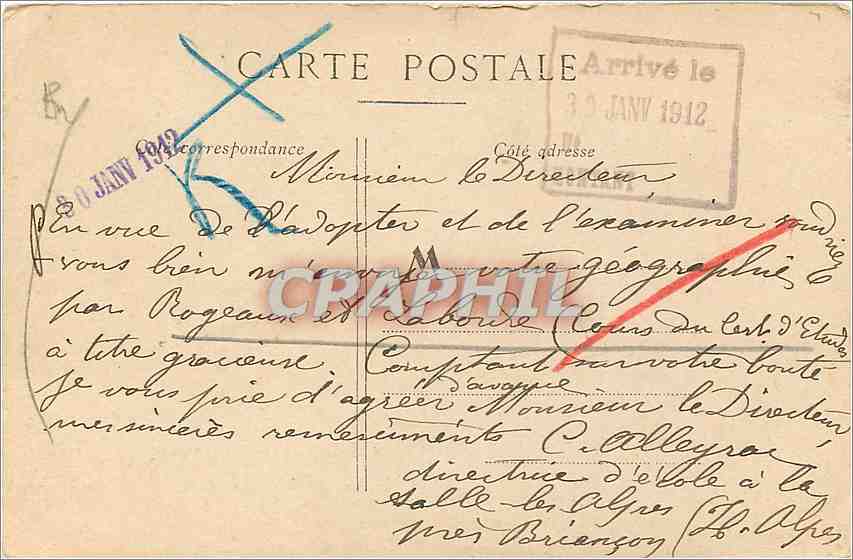 CARTE POSTALE
Arrivé le
30 JANV 1912
30 JANV 1912
Côté correspondance
Côté adresse
Monsieur le Directeur,
En vue de l'adopter et de l'examiner voudriez
-vous bien m'envoyer votre géographie
par Rogeaux et Laborde (Cours du Cert. d'Etudes
à titre gracieux. Comptant sur votre bonté
d'avance
je vous prie d'agréer Monsieur le Directeur,
mes sincères remerciments
C. Alleyrac
directrice d'école à la
Salle-les-Alpes
près Briançon (H-Alpes
M
CPRAPHIL